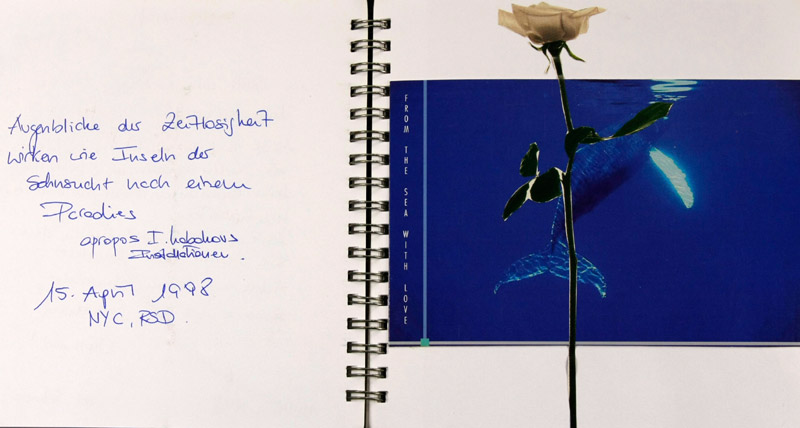 Augenblicke der Zeitlosigkeit
wirken wie Inseln der
Sehnsucht nach einem
Paradies
apropos I. Kabakovs
Installationen.
15. April 1998
NYC, RSD.
FROM THE SEA WITH LOVE